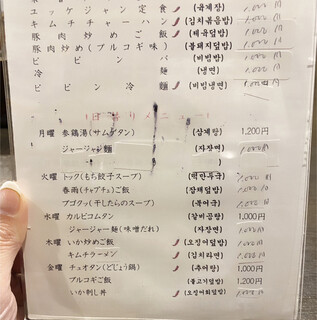 ユッケジャン定食 (육계장) 1,000円
キムチチャーハン (김치볶음밥) 1,000円
豚肉炒めご飯 (제육덮밥) 1,000円
豚肉炒め(プルコギ味) (불돼지덮밥) 1,000円
ビビンバ (비빔밥) 1,000円
冷麺 (냉면) 1,000円
ビビン冷麺 (비빔냉면) 1,000円
日替りメニュー
月曜 参鶏湯(サムゲタン) (삼계탕) 1,200円
ジャージャン麺 (자장면) 1,000円
火曜 トック(もち餃子スープ) (떡만두국) 1,000円
春雨(チャプチェ)ご飯 (잡채덮밥) 1,000円
プゴクッ(干したらのスープ) (북어국) 1,000円
水曜 カルビコムタン (갈비곰탕) 1,000円
ジャージャー麺(味噌だれ) (자장면) 1,000円
木曜 いか炒めご飯 (오징어덮밥) 1,000円
キムチラーメン (김치라면) 1,000円
金曜 チュオタン(どじょう鍋) (추어탕) 1,000円
プルコギご飯 (불고기덮밥) 1,200円
いか刺し丼 (오징어회덮밥) 1,000円